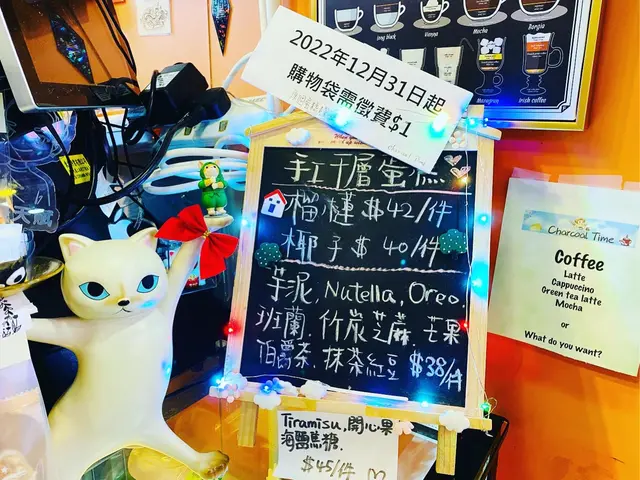 2022年12月31日起
購物袋需徵費$1
Long black
Vienna
Mocha
Borgia
Irish coffee
手工千層蛋糕
榴槤 $42/件
椰子 $40/件
芋泥, Nutella, Oreo.
班蘭, 竹炭芝麻, 芒果
伯爵茶, 抹茶紅豆 $38/件
Tiramisu, 開心果
海鹽焦糖.
$45/件
Charcoal Time
Coffee
Latte
Cappuccino
Green tea latte
Mocha
or
What do you want?